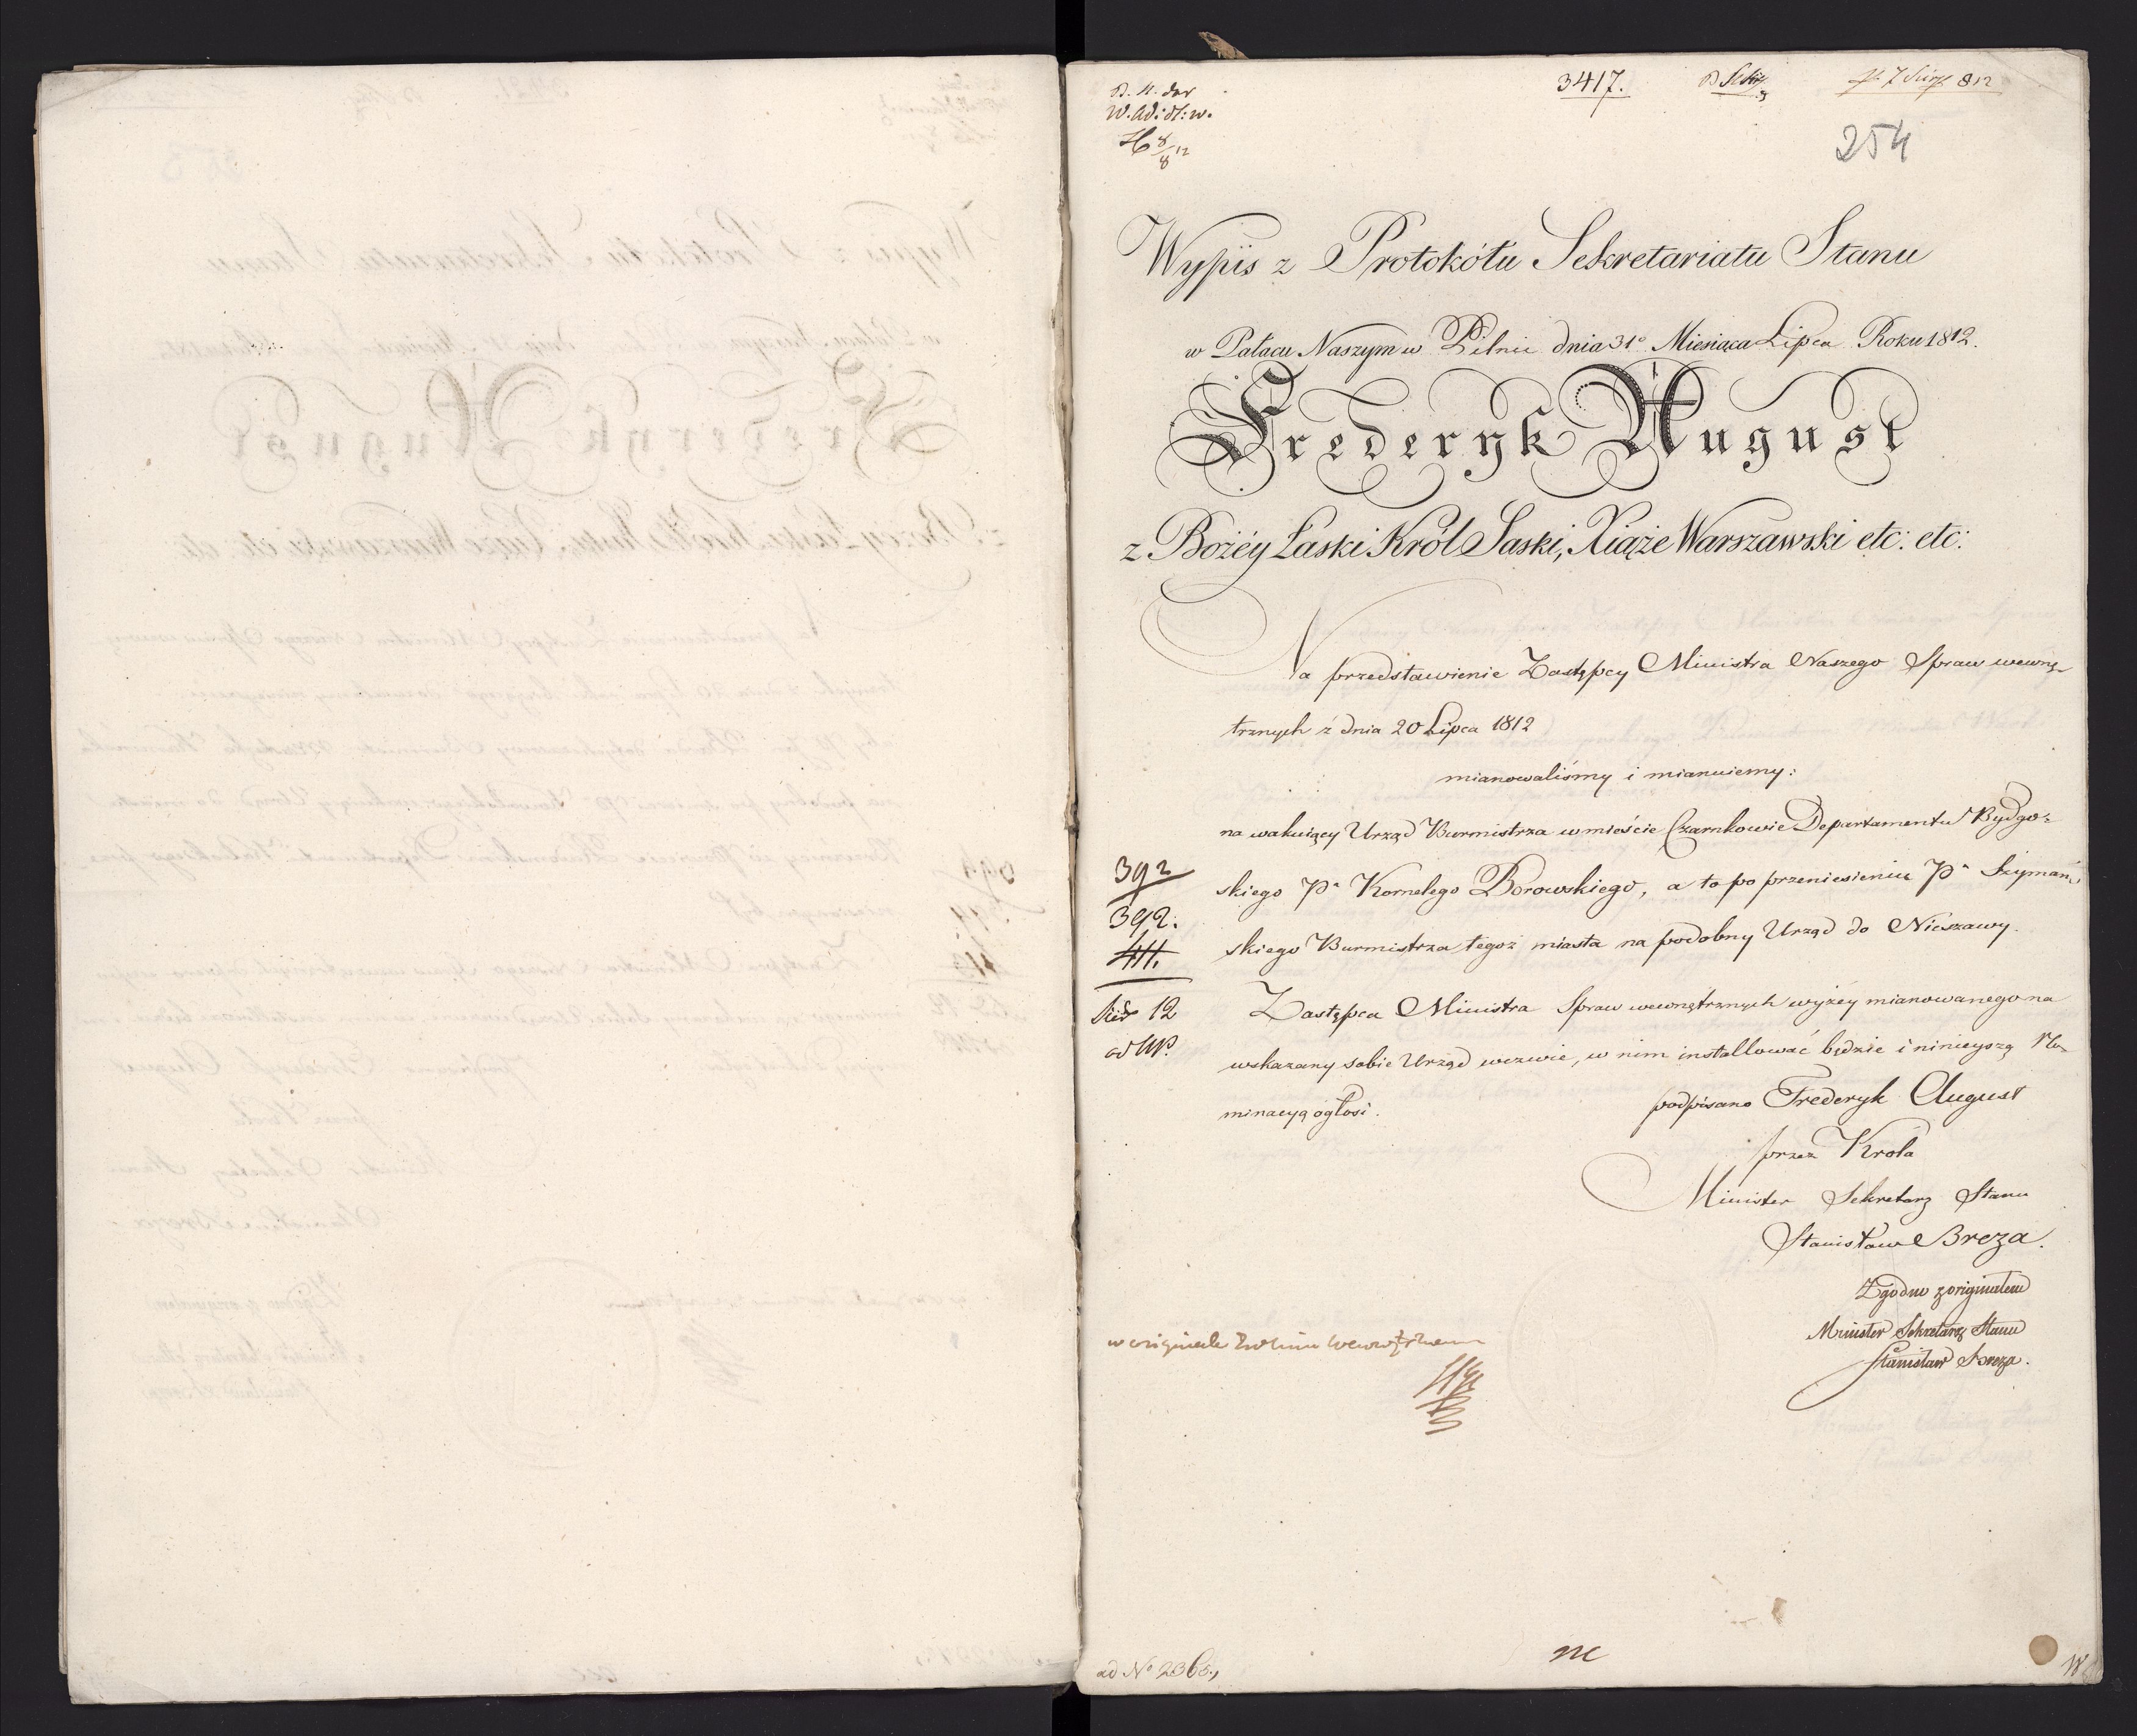 3417.
254
W. Ad: dl: w.
8/8 12
Wypis z Protokółu Sekretariatu Stanu
w Pałacu Naszym w Pilnic dnia 31º Miesiąca Lipca Roku 1812.
Frederyk August
z Bożéy Łaski Król Saski, Xiąże Warszawski etc: etc:
Na przedstawienie Zastępcy Ministra Naszego Spraw wewnę-
trznych z dnia 20 Lipca 1812
mianowaliśmy i mianuiemy:
na wakuiący Urząd Burmistrza w mieście Czarnkowie Departamentu Bydgo-
skiego Pª Kornelego Borowskiego, a to po przeniesieniu Pª Szymań-
skiego Burmistrza tegoż miasta na podobny Urząd do Nieszawy.
392
392.
411.
12
Zastępca Ministra Spraw wewnętrznych wyżéy mianowanego na
wskazany sobie Urząd wezwie, w nim installować będzie i ninieyszą No-
minacyą ogłosi.
podpisano Frederyk August
przez Króla
Minister Sekretarz Stanu
Stanisław Breza.
Zgodno z originałem
Minister Sekretarz Stanu
Stanisław Breza.
w originale
ad Nº 2368.,